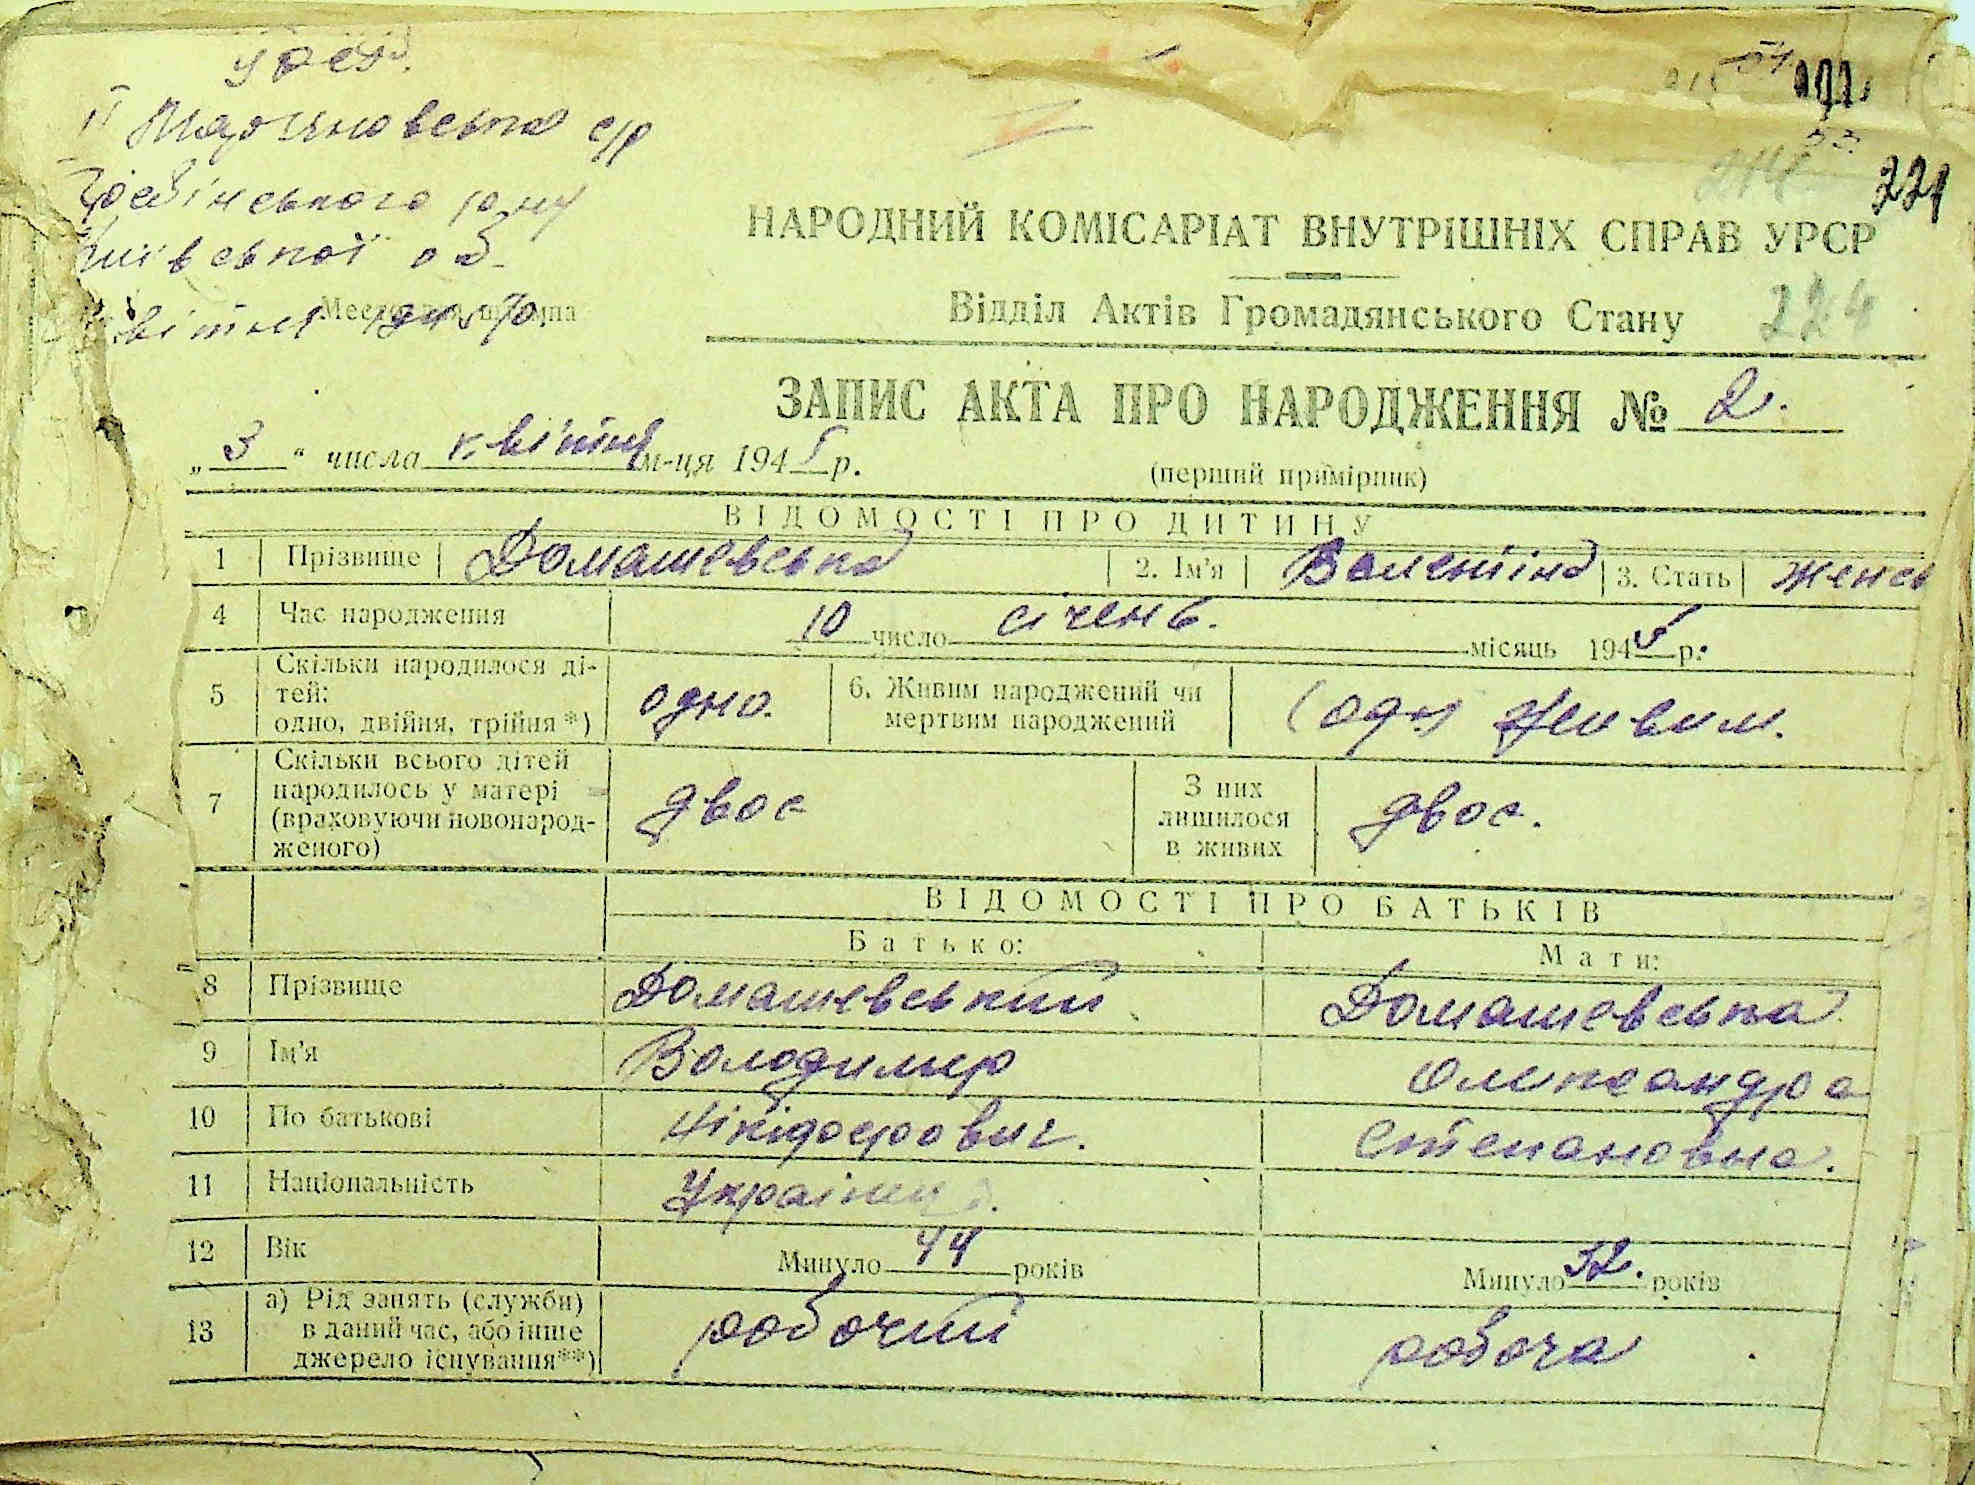 УРСР.
221
НАРОДНИЙ КОМІСАРІАТ ВНУТРІШНІХ СПРАВ УРСР
Відділ Актів Громадянського Стану
224
ЗАПИС АКТА ПРО НАРОДЖЕННЯ № 2.
„ 3 “ числа квітня м-ця 1945 р.
(перший примірник)
ВІДОМОСТІ ПРО ДИТИНУ
1 Прізвище Домашевська 2. Ім'я Валентіна 3. Стать женсь
4 Час народження 10 число січень. місяць 1945 р.
5 Скільки народилося ді-
тей:
одно, двійня, трійня*) одно. 6. Живим народжений чи
мертвим народжений живим.
7 Скільки всього дітей
народилось у матері
(враховуючи новонарод-
женого) двоє З них
лишилося
в живих двоє.
ВІДОМОСТІ ПРО БАТЬКІВ
Батько: Мати:
8 Прізвище Домашевський Домашевська
9 Ім'я Володимир Олександра
10 По батькові Нікіфорович. Степановна.
11 Національність Українці.
12 Вік Минуло 44 років Минуло 32. років
13 а) Рід занять (служби)
в даний час, або інше
джерело існування**) робочий робоча